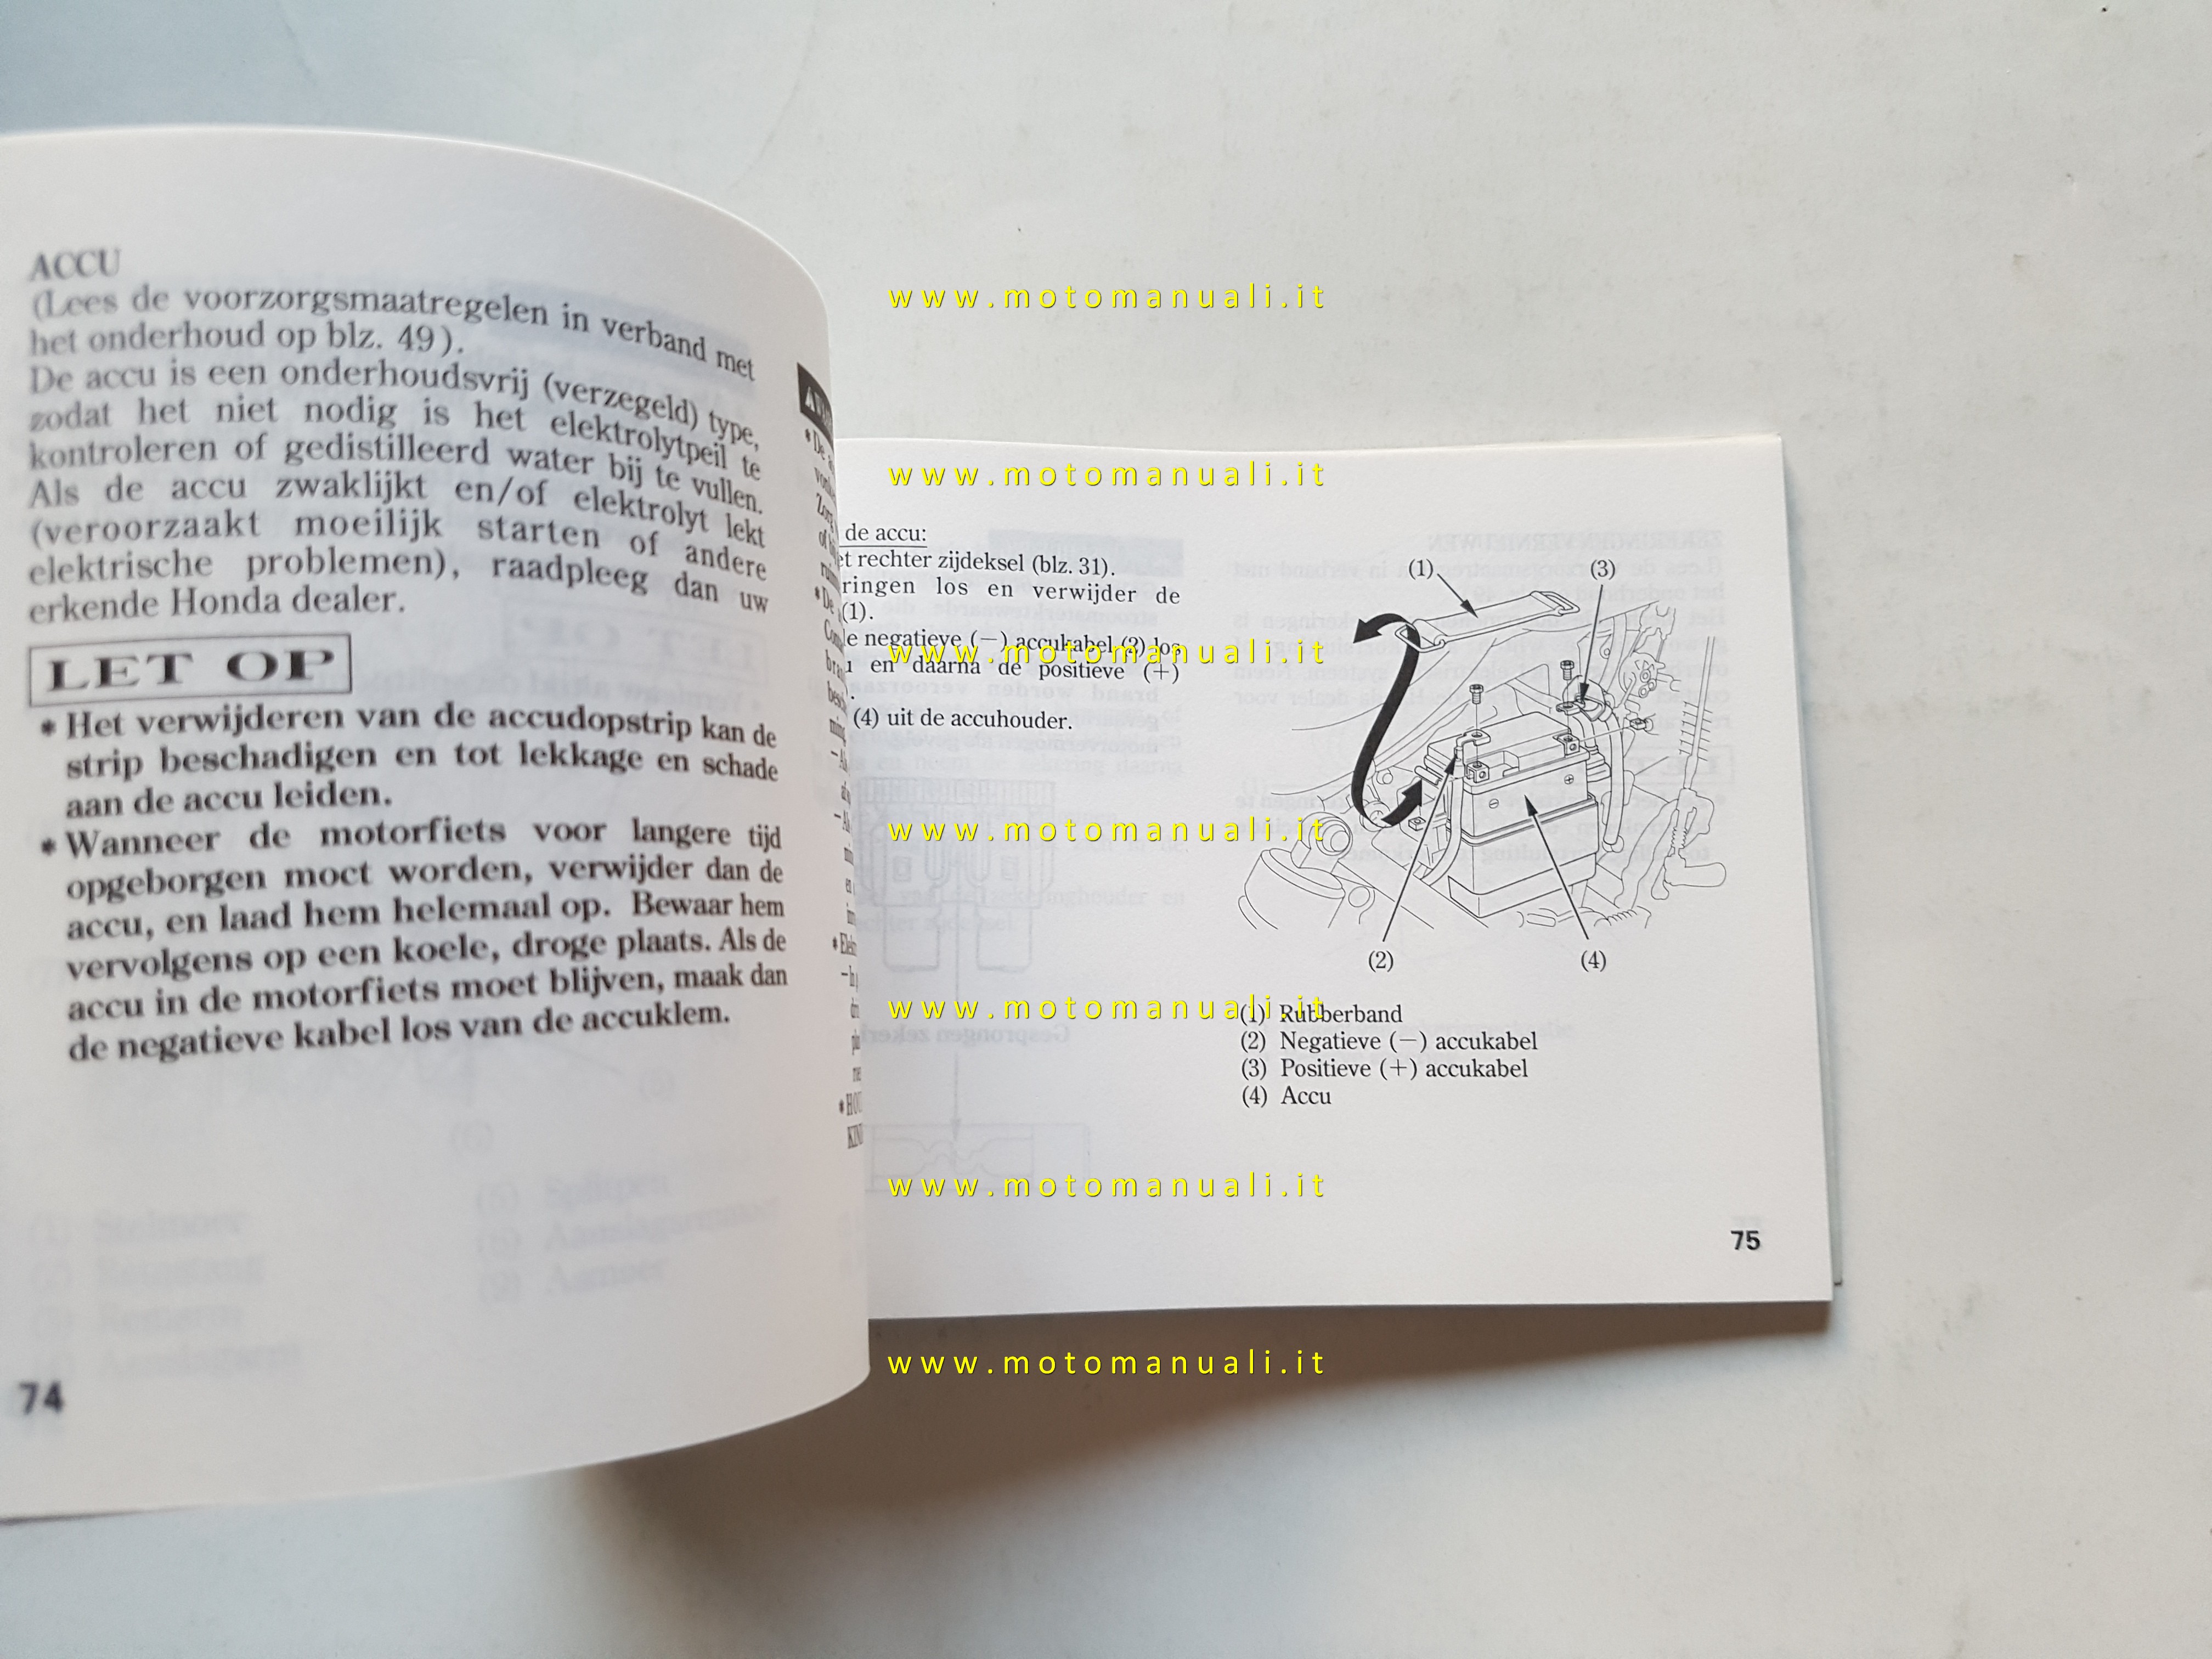 ACCU
(Lees de voorzorgsmaatregelen in verband met
het onderhoud op blz. 49).
De accu is een onderhoudsvrij (verzegeld) type,
zodat het niet nodig is het elektrolytpeil te
kontroleren of gedistilleerd water bij te vullen.
Als de accu zwaklijkt en/of elektrolyt lekt
(veroorzaakt moeilijk starten of andere
elektrische problemen), raadpleeg dan uw
erkende Honda dealer.
LET OP
* Het verwijderen van de accudopstrip kan de
strip beschadigen en tot lekkage en schade
aan de accu leiden.
* Wanneer de motorfiets voor langere tijd
opgeborgen moet worden, verwijder dan de
accu, en laad hem helemaal op. Bewaar hem
vervolgens op een koele, droge plaats. Als de
accu in de motorfiets moet blijven, maak dan
de negatieve kabel los van de accuklem.
74
de accu:
rechter zijdeksel (blz. 31).
los en verwijder de
(1).
negatieve (−) accukabel (2) los
en daarna de positieve (+)
(4) uit de accuhouder.
(1)
(3)
(2)
(4)
(1) Rubberband
(2) Negatieve (−) accukabel
(3) Positieve (+) accukabel
(4) Accu
75
www.motomanuali.it
www.motomanuali.it
www.motomanuali.it
www.motomanuali.it
www.motomanuali.it
www.motomanuali.it
www.motomanuali.it